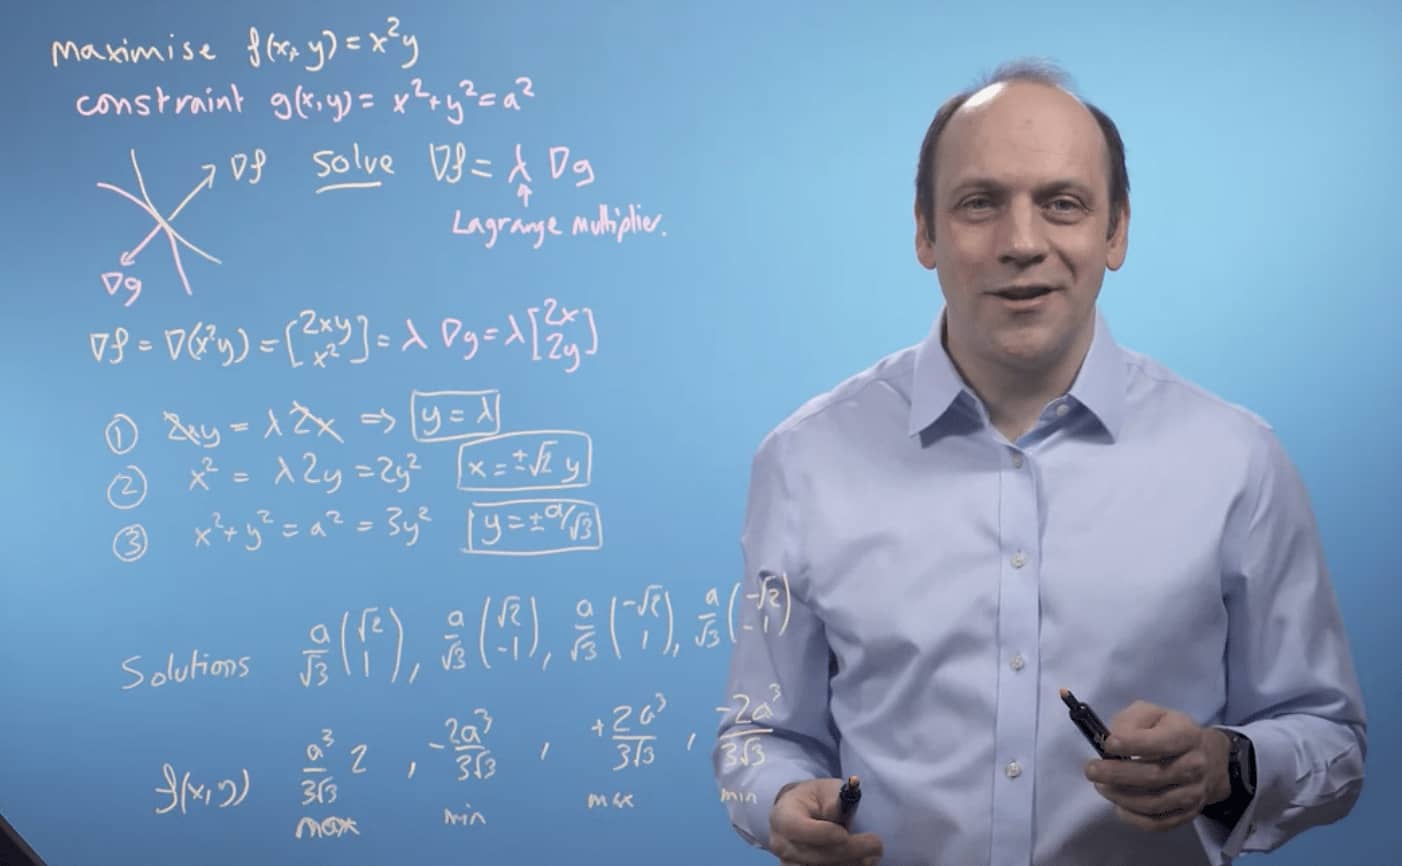 maximise f(x,y) = x²y
constraint g(x,y) = x²+y² = a²
∇f solve ∇f = λ ∇g
Lagrange Multiplier.
∇g
∇f = ∇(x²y) = [2xy x²] = λ ∇g = λ [2x 2y]
① 2xy = λ2x ⇒ y = λ
② x² = λ2y = 2y² x = ±√2 y
③ x²+y² = a² = 3y² y = ±a/√3
Solutions a/√3 (√2 1), a/√3 (√2 -1), a/√3 (-√2 1), a/√3 (-√2 -1)
f(x,y) a³/3√3 2, -2a³/3√3, +2a³/3√3, -2a³/3√3
max min max min